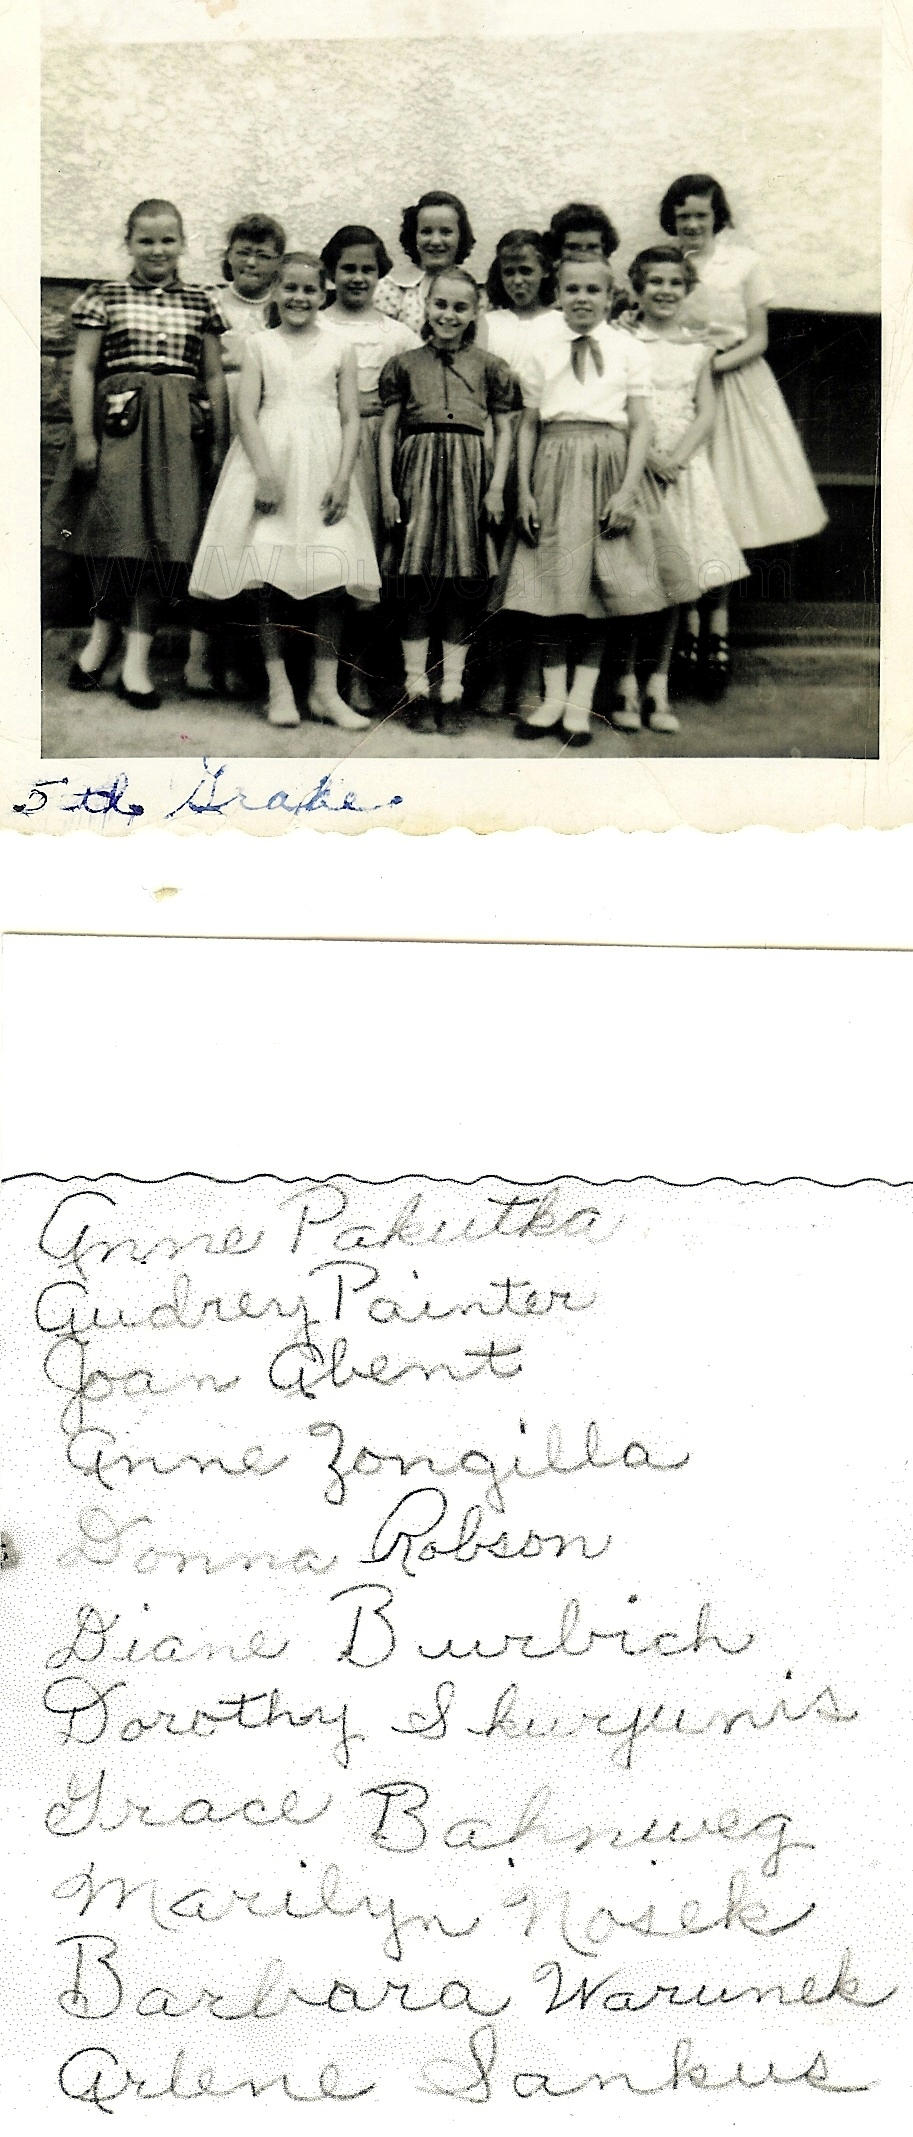 WWW.DuryeaPA.Com
5th Grade.
Anne Pakutka
Audrey Painter
Joan Abent
Anne Zongilla
Donna Robson
Diane Burbich
Dorothy Skurjunis
Grace Bahnweg
Marilyn Nosek
Barbara Warunek
Arlene Sankus